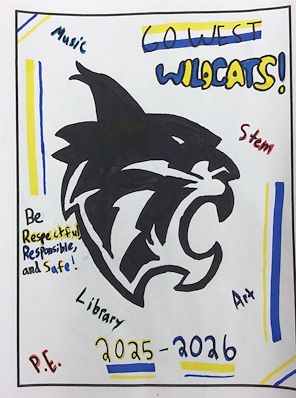 Music
GO WEST
WILDCATS!
Stem
Be
Respectful,
Responsible,
and Safe!
Library
Art
P.E.
2025-2026